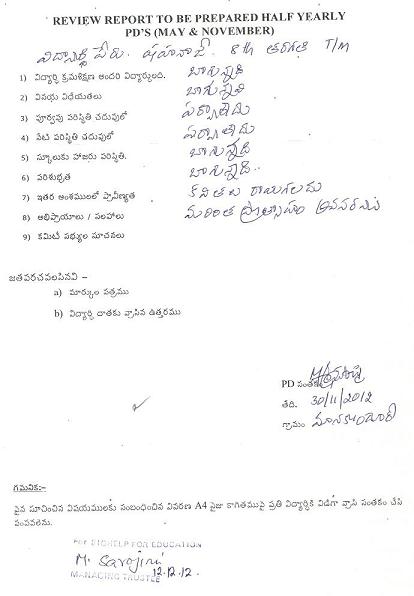 REVIEW REPORT TO BE PREPARED HALF YEARLY
PD'S (MAY & NOVEMBER)
విద్యార్థి పేరు. షహనాజ్. 8th తరగతి T/M
1) విద్యార్థి క్రమశిక్షణ అందరి విద్యార్థులలో. బాగున్నది
2) వినయ విధేయతలు బాగున్నవి
3) పూర్వపు పరిస్థితి చదువులో పర్వాలేదు
4) నేటి పరిస్థితి చదువులో పర్వాలేదు
5) స్కూలుకు హాజరు పరిస్థితి. బాగున్నది
6) పరిశుభ్రత బాగున్నది.
7) ఇతర అంశములలో ప్రావీణ్యత కవితలు రాయగలదు
8) అభిప్రాయాలు / సలహాలు మరింత ప్రోత్సాహం అవసరము
9) కమిటీ సభ్యుల సూచనలు
జతపరచవలసినవి –
a) మార్కుల పత్రము
b) విద్యార్థి దాతకు వ్రాసిన ఉత్తరము
PD సంతకం
తేది. 30/11/2012
గ్రామం
గమనిక:-
పైన సూచించిన విషయములకు సంబంధించిన వివరణ A4 సైజు కాగితముపై ప్రతి విద్యార్థికి విడిగా వ్రాసి సంతకం చేసి
పంపవలెను.
For SIGHELP FOR EDUCATION
M. Sarojini
12.12.12
MANAGING TRUSTEE